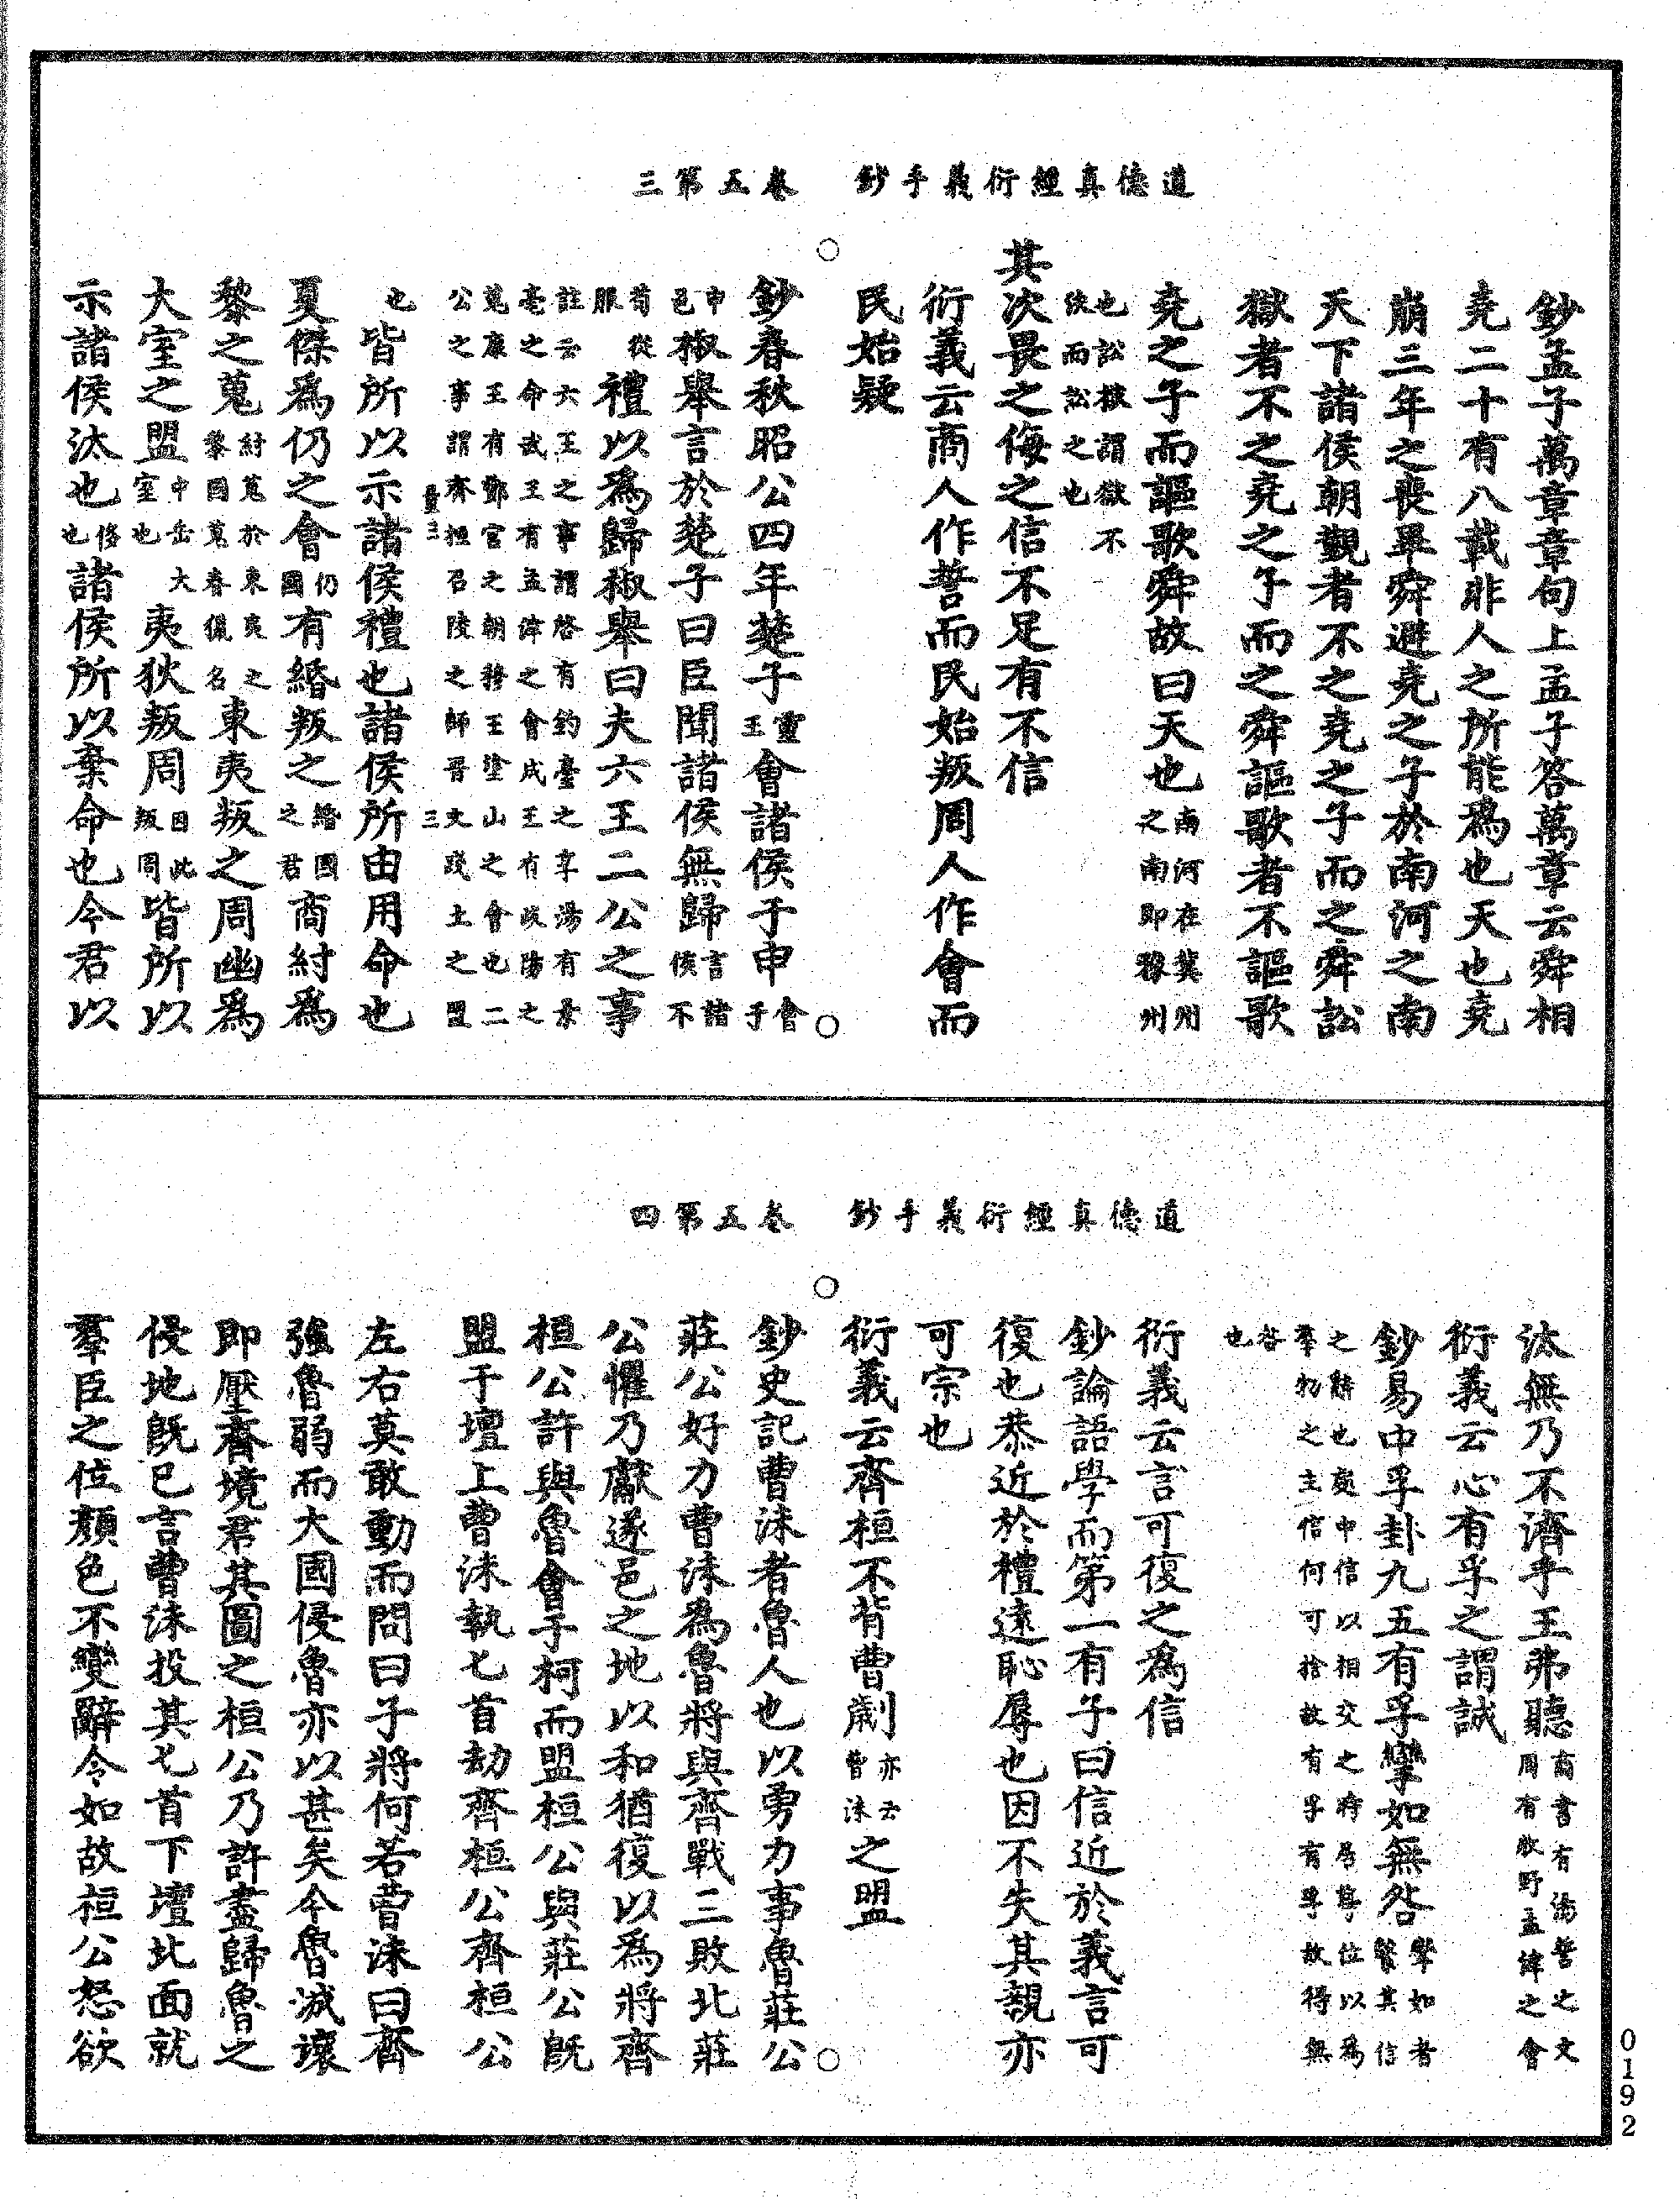 道德真經衍義手鈔　卷五第三
鈔孟子萬章章句上孟子答萬章云舜相
堯二十有八載非人之所能為也天也堯
崩三年之喪畢舜避堯之子於南河之南
天下諸侯朝覲者不之堯之子而之舜訟
獄者不之堯之子而之舜謳歌者不謳歌
堯之子而謳歌舜故曰天也南河在冀州之南即豫州
也訟獄謂獄不決而訟之也
其次畏之侮之信不足有不信
衍義云商人作誓而民始叛周人作會而
民始疑
鈔春秋昭公四年楚子靈王會諸侯于申會于
申邑椒舉言於楚子曰臣聞諸侯無歸言諸侯不
苟從服禮以為歸椒舉曰夫六王二公之事
註云六王之事謂啓有鈞臺之享湯有景亳之命武王有孟津之會成王有岐陽之
蒐康王有酆宮之朝穆王塗山之會也二公之事謂齊桓召陵之師晉文踐土之盟
也皆所以示諸侯禮也諸侯所由用命也
量三　三
夏傑為仍之會仍國有緡叛之緡國之君商紂為
黎之蒐紂蒐於東夷之黎國蒐春獵名東夷叛之周幽為
大室之盟中岳大室也夷狄叛周因此叛周皆所以
示諸侯汰也侈也諸侯所以棄命也今君以
道德真經衍義手鈔　卷五第四
汰無乃不濟乎王弗聽商書有湯誓之文周有牧野孟津之會
衍義云心有孚之謂誠
鈔易中孚卦九五有孚攣如無咎攣如者繫其信
之辭也處中信以相交之時居尊位以為羣物之主信何可捨故有孚有孚故得無
咎也
衍義云言可復之為信
鈔論語學而第一有子曰信近於義言可
復也恭近於禮遠恥辱也因不失其親亦
可宗也
衍義云齊桓不背曹劌亦云曹沫之盟
鈔史記曹沫者魯人也以勇力事魯莊公
莊公好力曹沫為魯將與齊戰三敗北莊
公懼乃獻遂邑之地以和猶復以為將齊
桓公許與魯會于柯而盟桓公與莊公既
盟于壇上曹沫執匕首劫齊桓公齊桓公
左右莫敢動而問曰子將何若曹沫曰齊
強魯弱而大國侵魯亦以甚矣今魯城壞
即壓齊境君其圖之桓公乃許盡歸魯之
侵地既已言曹沫投其匕首下壇北面就
羣臣之位顏色不變辭令如故桓公怒欲
0192